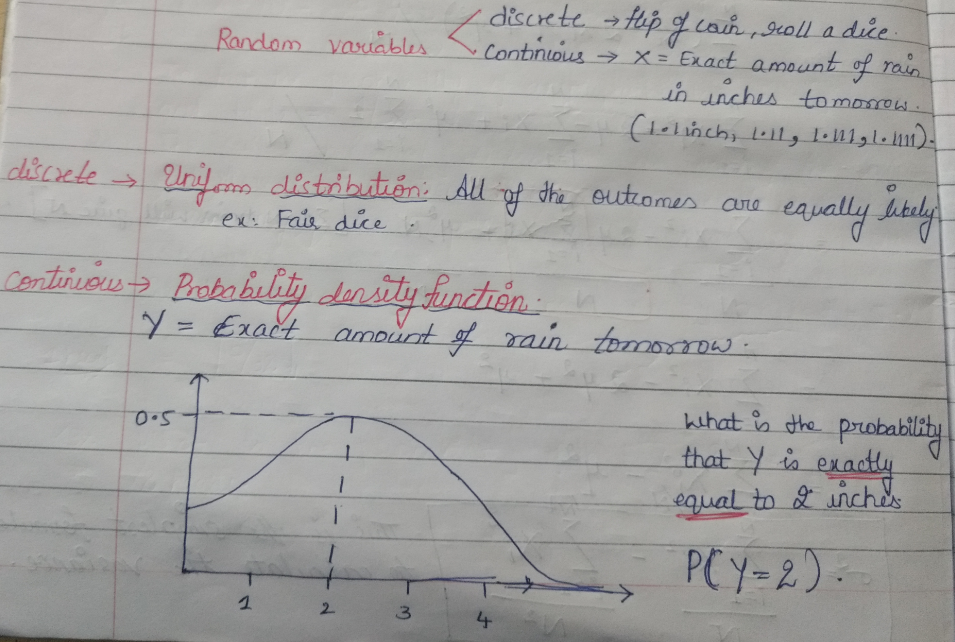 discrete → flip of coin, roll a dice.
Random variables
continious → x = Exact amount of rain
in inches tomorrow.
(1.1 inch, 1.11, 1.111, 1.1111).
discrete → Uniform distribution: All of the outcomes are equally likely
ex: Fair dice.
continious → Probability density function.
Y = Exact amount of rain tomorrow.
0.5
What is the probability
that Y is exactly
equal to 2 inches
P(Y=2).
1 2 3 4